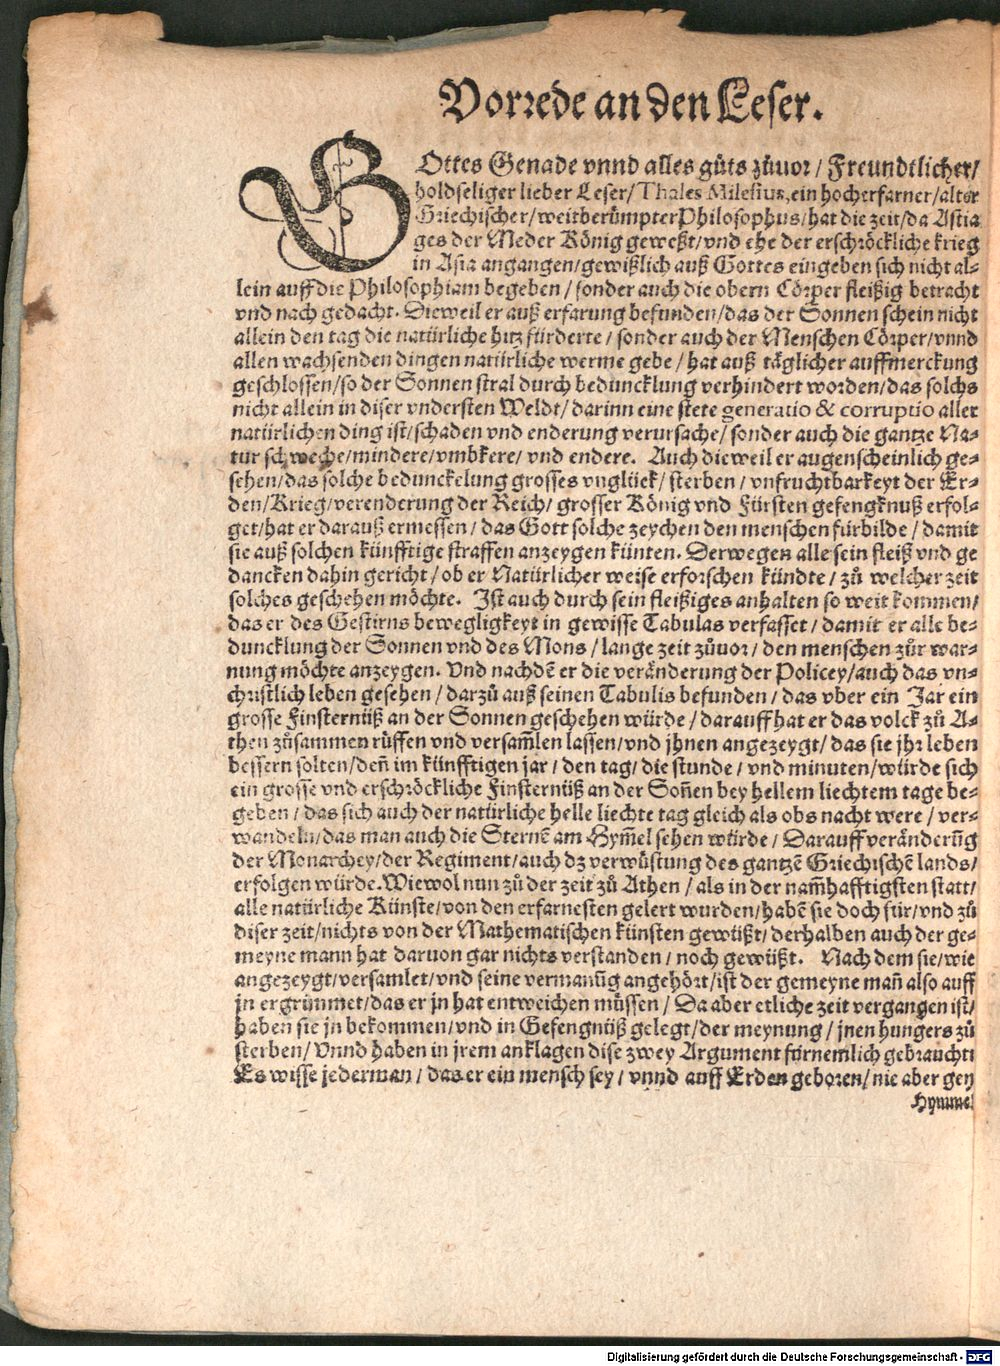 Vorrede an den Leser.
GOttes Genade vnnd alles gůts zůuor / Freundtlicher /
holdseliger lieber Leser / Thales Milesius, ein hocherfarner / alter
Griechischer / weitberümpter Philosophus / hat die zeit / da Astia
ges der Meder König geweßt / vnd ehe der erschröckliche krieg
in Asia angangen / gewißlich auß Gottes eingeben sich nicht al-
lein auff die Philosophiam begeben / sonder auch die obern Cörper fleißig betracht
vnd nach gedacht. Dieweil er auß erfarung befunden / das der Sonnen schein nicht
allein den tag die natürliche hitz fürderte / sonder auch der Menschen Cörper / vnnd
allen wachsenden dingen natürliche werme gebe / hat auß täglicher auffmerckung
geschlossen / so der Sonnen stral durch beduncklung verhindert worden / das solchs
nicht allein in diser vndersten Weldt / darinn eine stete generatio & corruptio aller
natürlichen ding ist / schaden vnd enderung verursache / sonder auch die gantze Na-
tur schweche / mindere / vmbkere / vnd endere. Auch dieweil er augenscheinlich ge-
sehen / das solche bedunckelung grosses vnglück / sterben / vnfruchtbarkeyt der Er-
den / Krieg / verenderung der Reich / grosser König vnd Fürsten gefengknuß erfol-
get / hat er darauß ermessen / das Gott solche zeychen den menschen fürbilde / damit
sie auß solchen künfftige straffen anzeygen künten. Derwegen alle sein fleiß vnd ge
dancken dahin gericht / ob er Natürlicher weise erforschen kündte / zů welcher zeit
solches geschehen möchte. Ist auch durch sein fleißiges anhalten so weit kommen /
das er des Gestirns bewegligkeyt in gewisse Tabulas verfasset / damit er alle be-
duncklung der Sonnen vnd des Mons / lange zeit zůuor / den menschen zůr war-
nung möchte anzeygen. Vnd nachdẽ er die veränderung der Policey / auch das vn-
christlich leben gesehen / darzů auß seinen Tabulis befunden / das vber ein Jar ein
grosse Finsternüß an der Sonnen geschehen würde / darauff hat er das volck zů A-
then zůsammen rüffen vnd versam̃len lassen / vnd jhnen angezeygt / das sie jhr leben
bessern solten / deñ im künfftigen jar / den tag / die stunde / vnd minuten / würde sich
ein grosse vnd erschröckliche Finsternüß an der Soñen bey hellem liechtem tage be-
geben / das sich auch der natürliche helle liechte tag gleich als obs nacht were / ver-
wandeln / das man auch die Sternẽ am Hym̃el sehen würde / Darauff veränderũg
der Monarchey / der Regiment / auch dz verwüstung des gantzẽ Griechischẽ lands /
erfolgen würde. Wiewol nun zů der zeit zů Athen / als in der nam̃hafftigsten statt /
alle natürliche Künste / von den erfarnesten gelert wurden / habẽ sie doch für / vnd zů
diser zeit / nichts von der Mathematischen künsten gewüßt / derhalben auch der ge-
meyne mann hat daruon gar nichts verstanden / noch gewüßt. Nach dem sie / wie
angezeygt / versamlet / vnd seine vermanũg angehört / ist der gemeyne mañ also auff
jn ergrimmet / das er jn hat entweichen müssen / Da aber etliche zeit vergangen ist /
haben sie jn bekommen / vnd in Gefengnüß gelegt / der meynung / jnen hungers zů
sterben / Vnnd haben in jrem anklagen dise zwey Argument fürnemlich gebraucht:
Es wisse jederman / das er ein mensch sey / vnnd auff Erden geboren / nie aber gen
Hymmel
Digitalisierung gefördert durch die Deutsche Forschungsgemeinschaft - DFG